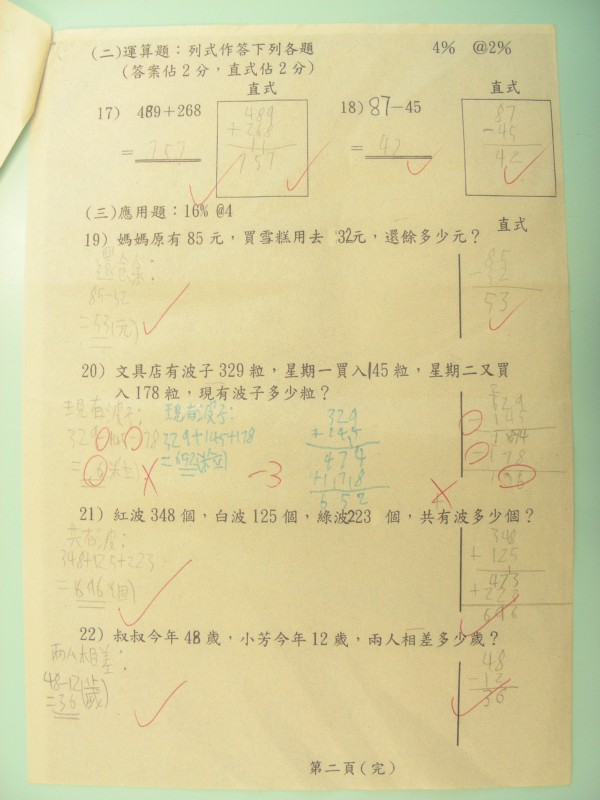 (二)運算題:列式作答下列各題 4% @2%
(答案佔2分,直式佔2分)
直式 直式
17) 489+268 18) 87-45
489
+268
757
= 757
87
-45
42
= 42
(三)應用題:16% @4
直式
19) 媽媽原有85元,買雪糕用去 32元,還餘多少元?
85-32
=53(元)
85
-32
53
20) 文具店有波子329粒,星期一買入145粒,星期二又買
入178粒,現有波子多少粒?
現有波子:
現有波子:
329+145+178
=652(粒)
329
+145
474
+178
652
-3
21) 紅波348個,白波125個,綠波223 個,共有波多少個?
共有波:
348+125+223
=696(個)
348
+125
473
+223
696
22) 叔叔今年48歲,小芳今年12歲,兩人相差多少歲?
兩人相差:
48-12
=36(歲)
48
-12
36
第二頁(完)